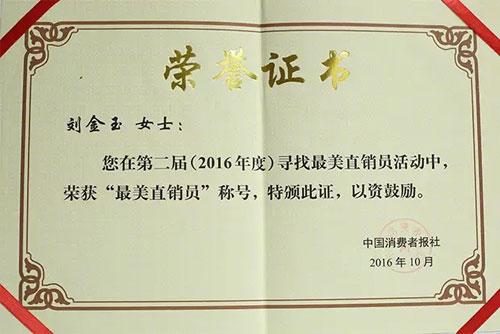 荣誉证书
刘金玉 女士：
您在第二届（2016年度）寻找最美直销员活动中，
荣获“最美直销员”称号，特颁此证，以资鼓励。
中国消费者报社
2016年10月